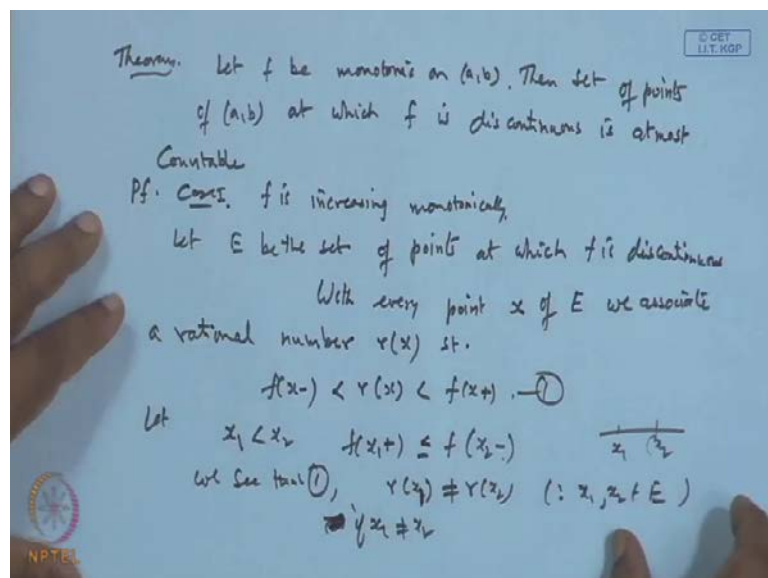 © CET
I.I.T. KGP
Theorem. Let f be monotonic on (a,b). Then set of points
of (a,b) at which f is discontinuous is atmost
Countable
Pf. Case I. f is increasing monotonically.
Let E be the set of points at which f is discontinuous
With every point x of E we associate
a rational number r(x) st.
f(x-) < r(x) < f(x+) —①
Let
x₁ < x₂ f(x₁+) ≤ f(x₂-)
x₁ x₂
We see from ①, r(x₁) ≠ r(x₂) (∵ x₁, x₂ ∈ E)
if x₁ ≠ x₂
NPTEL